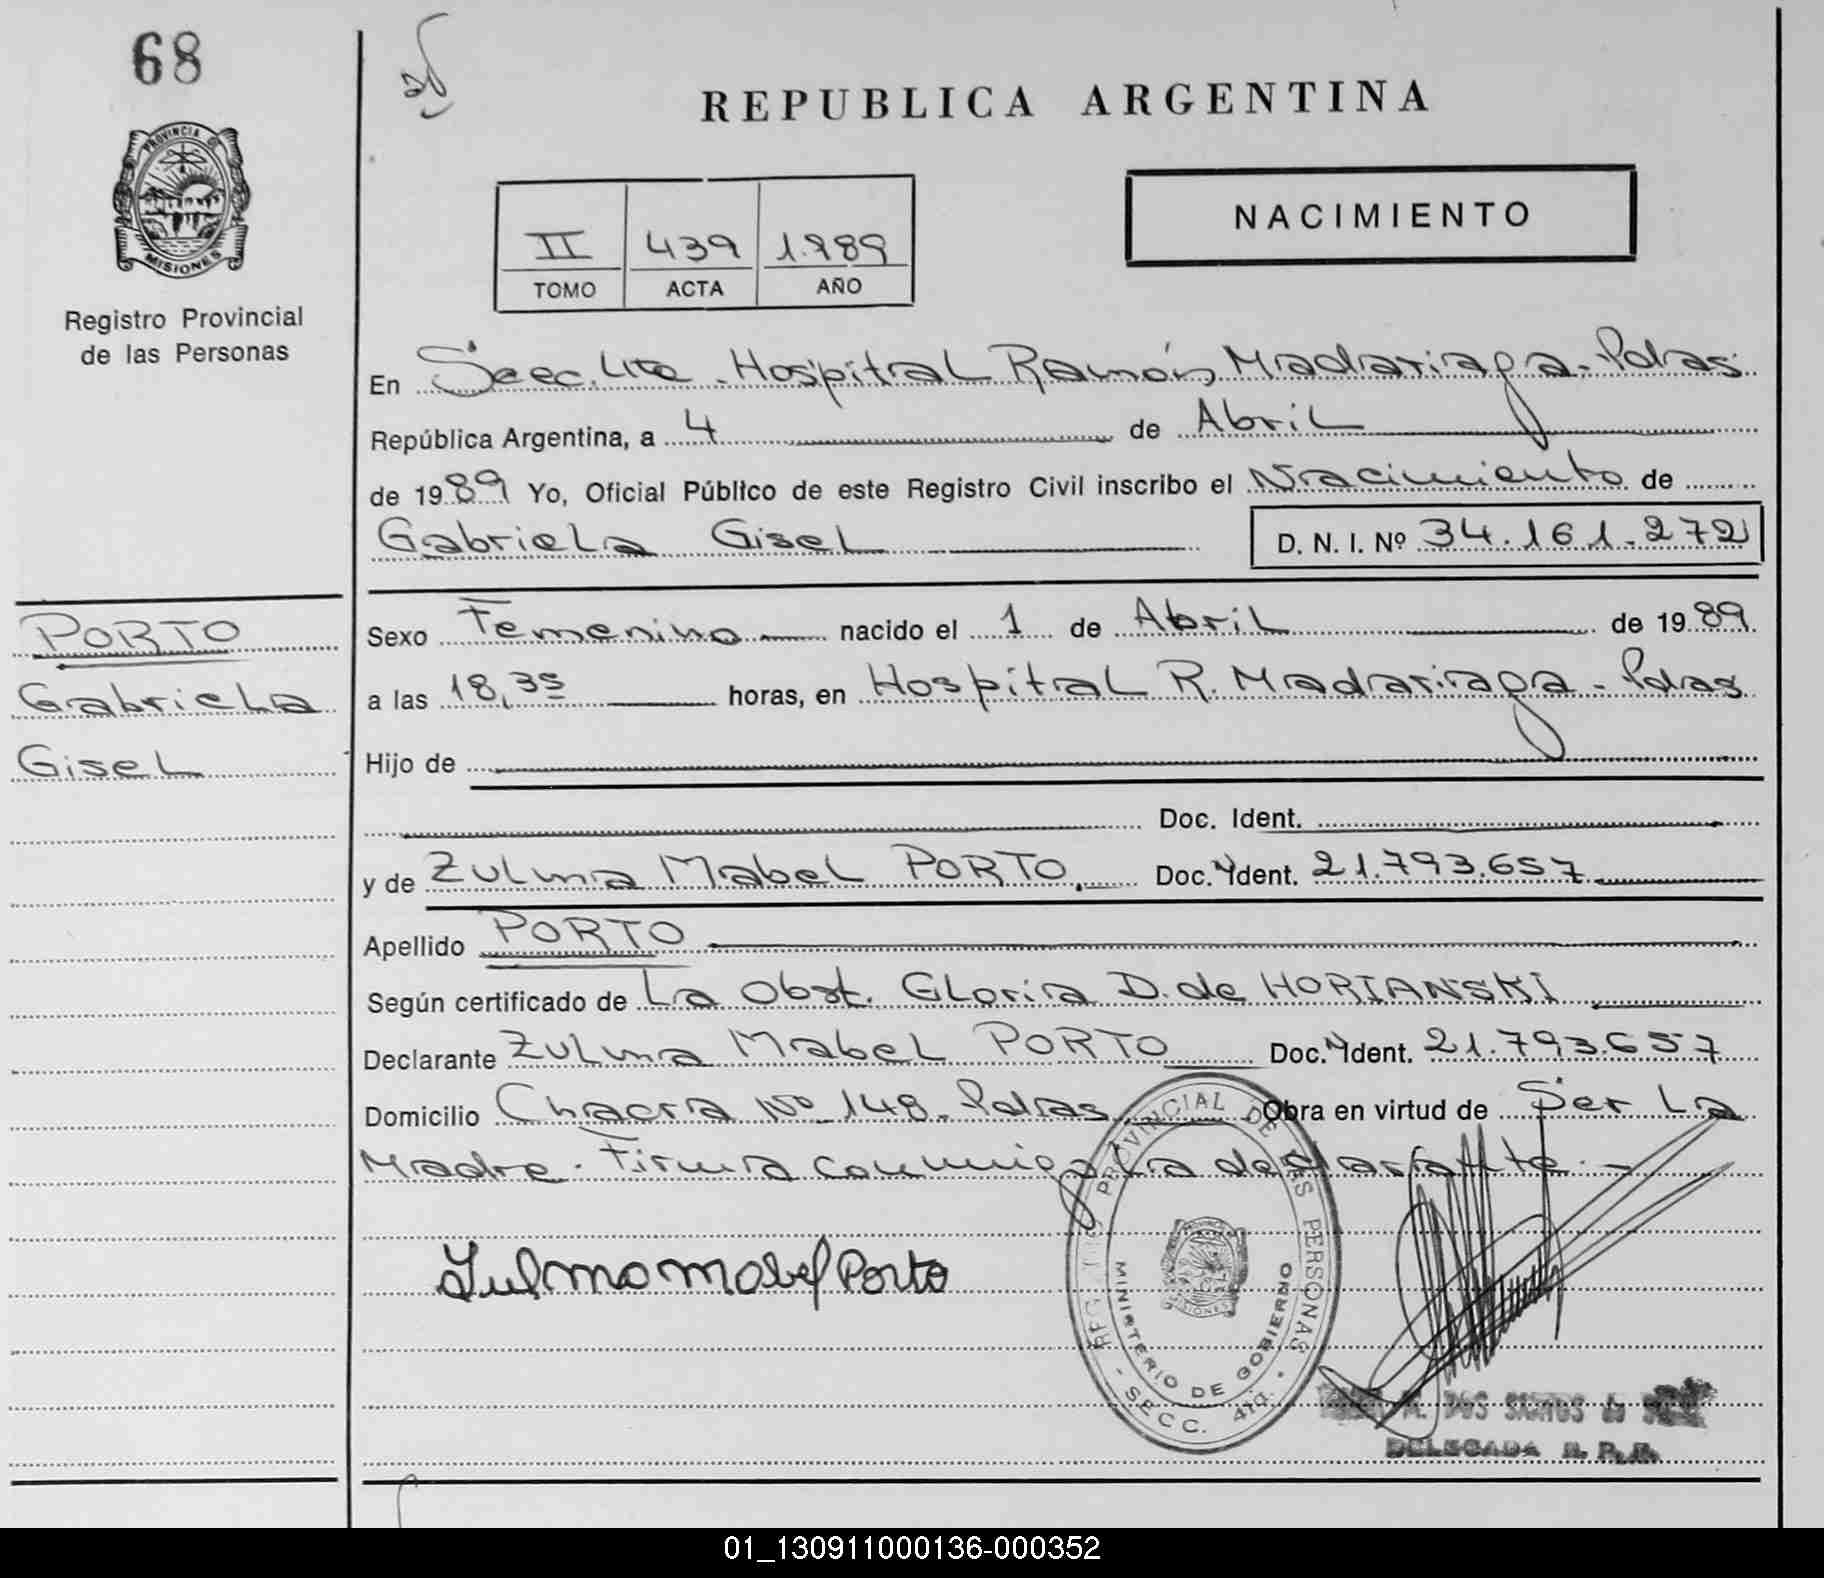 68
PROVINCIA DE
MISIONES
Registro Provincial
de las Personas
REPUBLICA ARGENTINA
NACIMIENTO
II 439 1.989
TOMO ACTA AÑO
En Secc. 4ta. Hospital Ramón Madariaga - Pdas.
República Argentina, a 4 de Abril
de 1989 Yo, Oficial Público de este Registro Civil inscribo el Nacimiento de
Gabriela Gisel D. N. I. Nº 34.161.272
PORTO
Gabriela
Gisel
Sexo Femenino nacido el 1 de Abril de 1989
a las 18,35 horas, en Hospital R. Madariaga - Pdas
Hijo de
Doc. Ident.
y de Zulma Mabel PORTO. Doc. Ident. 21.793.657
Apellido PORTO
Según certificado de La Obst. Gloria D. de HORIANSKI
Declarante Zulma Mabel PORTO Doc. Ident. 21.793.657
Domicilio Chacra Nº 148 - Pdas Obra en virtud de Ser La
Madre. Firma conmigo La declarante.-
Zulma Mabel Porto
REG. PROVINCIAL DE LAS PERSONAS
MINIRTERIO DE GOBIERNO
- SECC. 4ta. -
M. DOS SANTOS de
DELEGADA R. P. P.
01_130911000136-000352